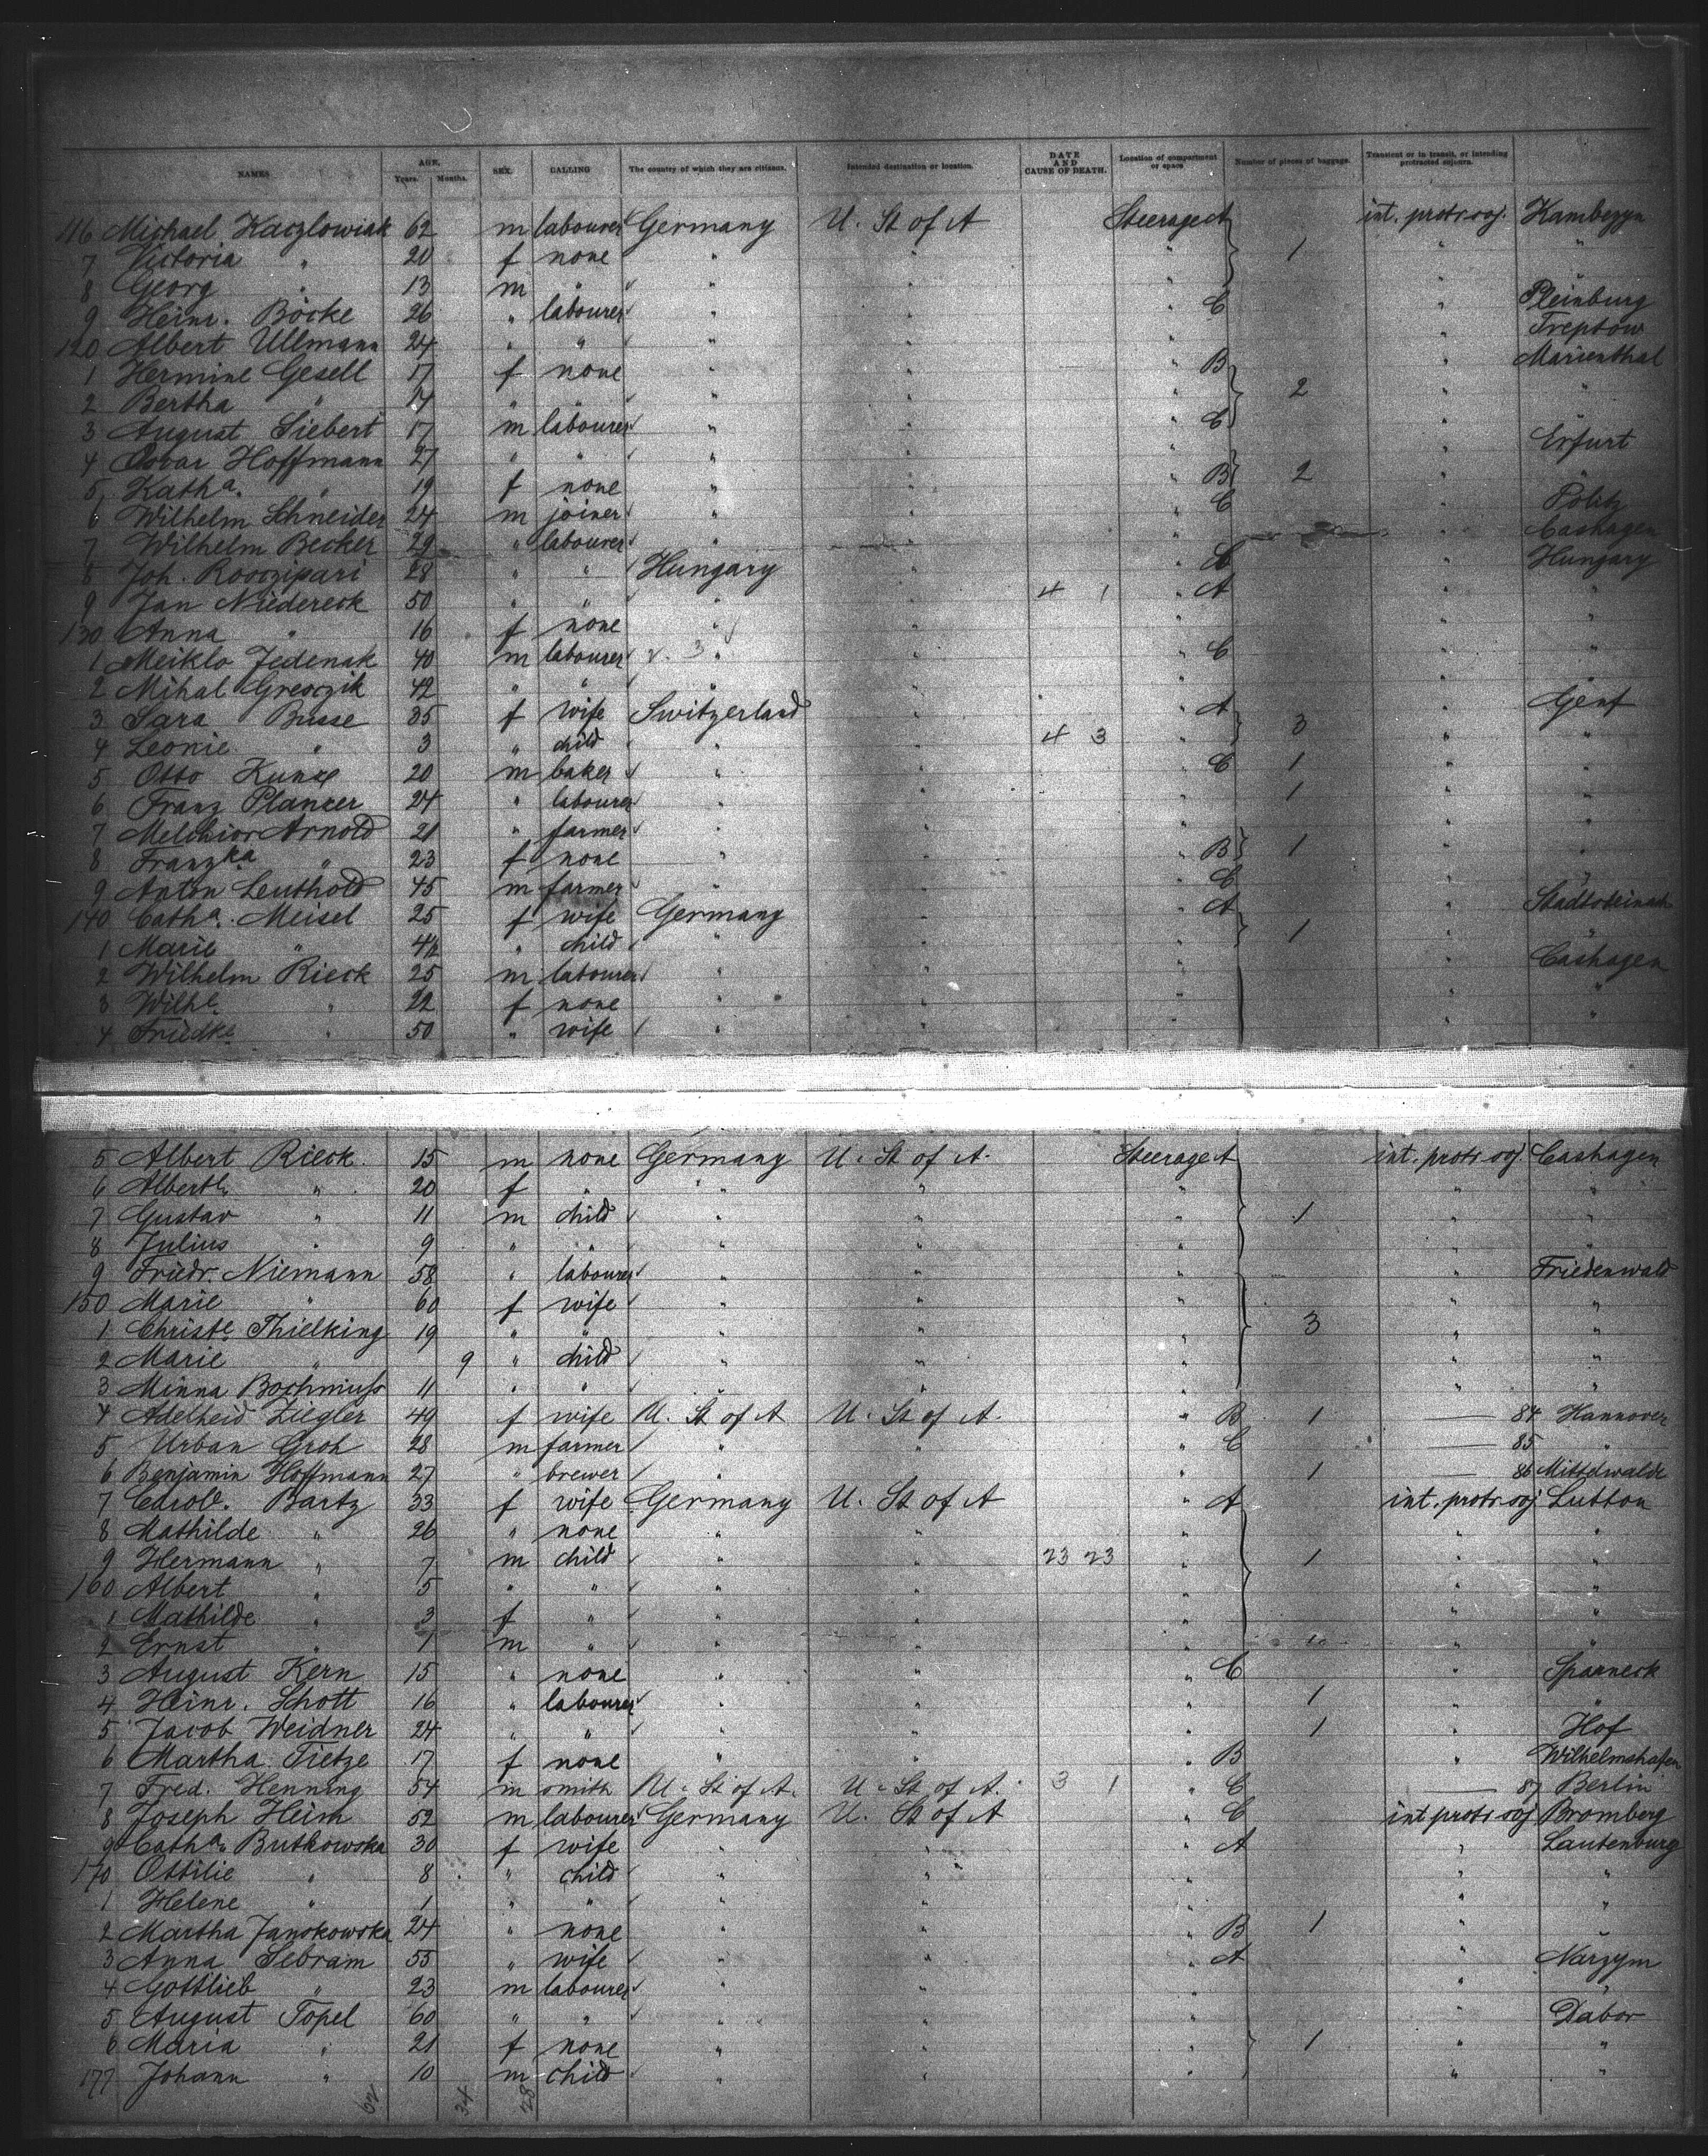 NAMES AGE. Years. Months. SEX. CALLING The country of which they are citizens. Intended destination or location. DATE AND CAUSE OF DEATH. Location of compartment or space Number of pieces of baggage. Transient or in transit, or intending protracted sojourn.
116 Michael Kaczlowiak 62 m labourer Germany U. St of A Steerage A int. protr. soj.
7 Victoria " 20 f none " " " 1 " "
8 Georg " 13 m " " " " "
9 Heinr. Böcke 26 " labourer " " " C " Pleinburg
120 Albert Ullmann 24 " " " " " " Treptow
1 Hermine Gesell 17 f none " " " B " Marienthal
2 Bertha " 14 " " " " " 2 " "
3 August Siebert 17 m labourer " " " C "
4 Oscar Hoffmann 27 " " " " " " Erfurt
5 Katha. " 19 f none " " " B 2 " "
6 Wilhelm Schneider 24 m joiner " " " C " Pölitz
7 Wilhelm Becker 29 " labourer " " " " Cashagen
8 Joh. 28 " " Hungary " " " Hungary
9 Jan Niedereck 50 " " " " 4 1 " A " "
130 Anna " 16 f none " " " " "
1 Meiklo Jedenak 40 m labourer " " " C " "
2 Mihal Gresczik 42 " " " " " " "
3 Sara Busse 35 f wife Switzerland " " A " Genf
4 Leonie " 3 " child " " 4 3 " 3 " "
5 Otto Kunze 20 m baker " " " C 1 " "
6 Franz Plancer 24 " labourer " " " 1 " "
7 Melchior Arnold 21 " farmer " " " " "
8 Franzka " 23 f none " " " B 1 " "
9 Anton Leuthold 45 m farmer " " " C " "
140 Catha. Meisel 25 f wife Germany " " A " Stadtsteinach
1 Marie " 4½ " child " " " 1 " "
2 Wilhelm Rieck 25 m labourer " " " " Cashagen
3 Wilhe. " 22 f none " " " " "
4 Friedke. " 50 " wife " " " " "
5 Albert Rieck. 15 m none Germany U. St of A. Steerage A int. protr. soj. Cashagen
6 Alberte. " 20 f " " " " " "
7 Gustav " 11 m child " " " 1 " "
8 Julius " 9 " " " " " " "
9 Friedr. Niemann 58 " labourer " " " " Friedenwald
150 Marie " 60 f wife " " " " "
1 Christe. Thielking 19 " " " " " 3 " "
2 Marie " 9 " child " " " " "
3 Minna 11 " " " " " " "
4 Adelheid Ziegler 49 f wife U. St of A U. St of A. " B 1 — 84 Hannover
5 Urban Groh 28 m farmer " " " C — 85 "
6 Benjamin Hoffmann 27 " brewer " " " 1 — 86 Mittelwalde
7 Carole. Bartz 33 f wife Germany U. St of A " A int. protr. soj Lutton
8 Mathilde " 26 " none " " " " "
9 Hermann " 7 m child " " 23 23 " 1 " "
160 Albert " 5 " " " " " " "
1 Mathilde " 3 f " " " " " "
2 Ernst " 1 m " " " " " "
3 August Kern 15 " none " " " C " Sparneck
4 Heinr. Schott 16 " labourer " " " 1 " "
5 Jacob Weidner 24 " " " " " 1 " Hof
6 Martha Tietze 17 f none " " " B " Wilhelmshafen
7 Fred. Henning 54 m smith U. St of A. U. St of A. 3 1 " C — 87 Berlin
8 Joseph Heim 52 m labourer Germany U. St of A " C int protr soj Bromberg
9 Catha. Butkowska 30 f wife " " " A " Lautenburg
170 Ottilie " 8 " child " " " " "
1 Helene " 1 " " " " " " "
2 Martha Janskowska 24 " none " " " B 1 " "
3 Anna Sebram 55 " wife " " " A " Narzym
4 Gottlieb " 23 m labourer " " " " "
5 August Topel 60 " " " " " " Dabor
6 Maria " 21 f none " " " 1 " "
177 Johann " 10 m child " " " " "
62 34 28